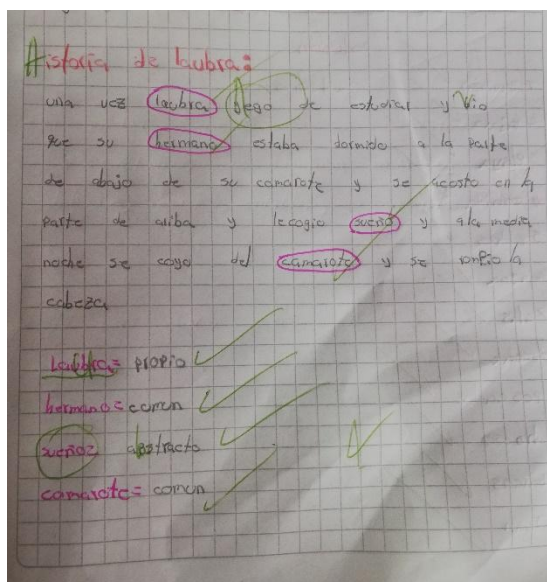 Historia de laubra:
una vez laubra llego de estudiar y Vio
que su hermano estaba dormido a la parte
de abajo de su camarote y se acosto en la
parte de aliba y lecogio sueño y ala media
noche se cayo del camarote y se ronpio la
cabeza
Laubra= propio
hermano= comun
sueño= abstracto
camarote= comun